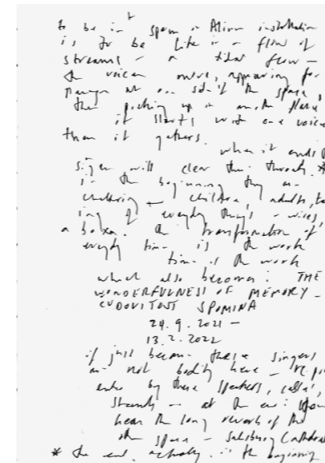 to be in space in Alien installation
is to be like in a flow of
streams – a tidal flow –
the voices move, appearing for
at one side of the space,
then picking up in another place
it starts with one voice
then it gathers.
when it ends the
singer will clear their throats.
in the beginning they are
chattering – children, adults, talk
ing of everyday things – voices,
a the transformation of
everyday time is the work
time is the work
which also becomes: THE
WONDERFULNESS OF MEMORY –
ČUDOVITOST SPOMINA
24.9.2021 –
13.2.2022
it just became these singers
are not bodily here –
by these speakers, called,
at the end: you
hear the long reverb of the
space – Salisbury Cathedral
* the end, actually, is the beginning